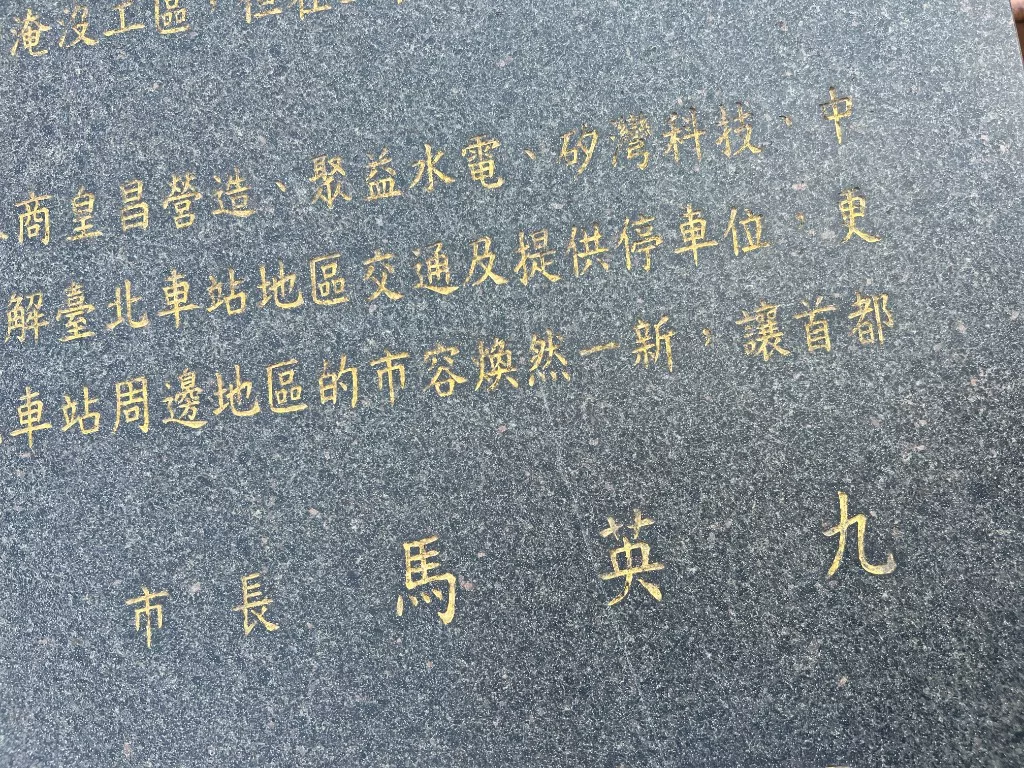 淹沒工區，但在
商皇昌營造、聚益水電、矽灣科技、中
解臺北車站地區交通及提供停車位，更
車站周邊地區的市容煥然一新，讓首都
市長 馬英九